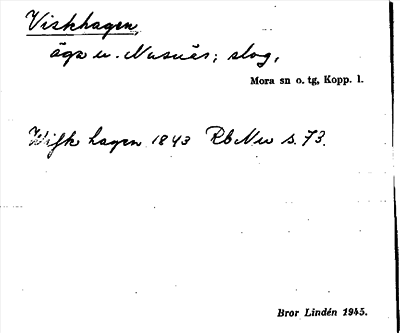 Viskhagen,
äga u. Nusnäs; slog,
Mora sn o. tg, Kopp. l.
Wisk hagen 1843 Rb Nu s. 73.
Bror Lindén 1945.